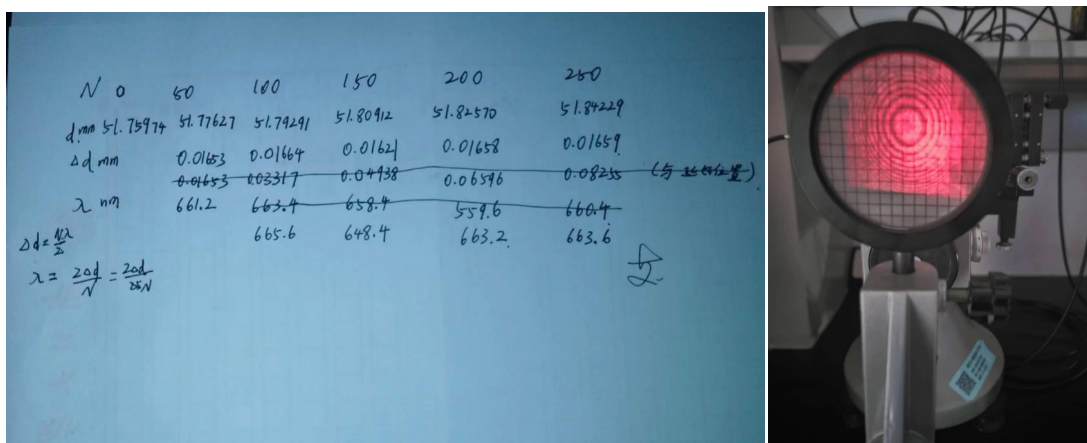 N 0 50 100 150 200 250
d mm 51.75974 51.77627 51.79291 51.80912 51.82570 51.84229
Δd mm 0.01653 0.01664 0.01621 0.01658 0.01659
0.01653 0.03317 0.04938 0.06596 0.08255 (与
λ nm 661.2 663.4 658.4 559.6 660.4
665.6 648.4 663.2 663.6
Δd = Nλ/2
λ = 2Δd/N =